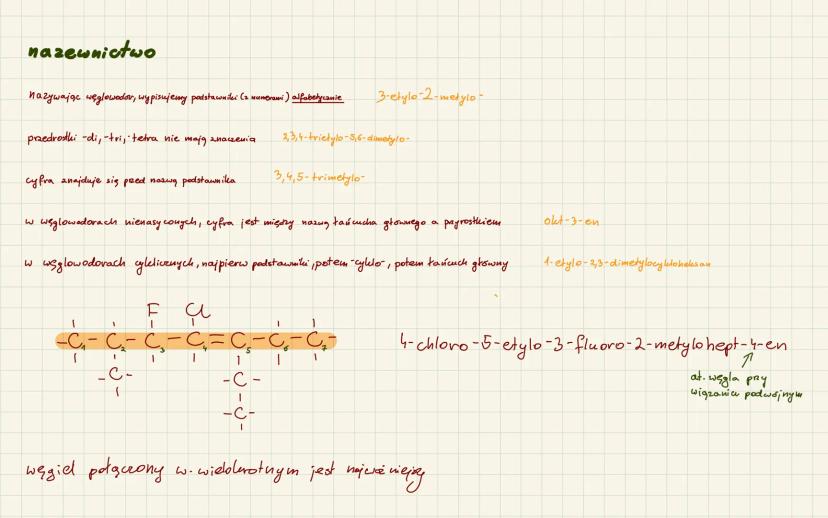 nazewnictwo
nazywając węglowodór, wypisujemy podstawniki (z numerami) alfabetycznie 3-etylo-2-metylo-
przedrostki -di, -tri, -tetra nie mają znaczenia 2,3,4-trietylo-5,6-dimetylo-
cyfra znajduje się przed nazwą podstawnika 3,4,5-trimetylo-
w węglowodorach nienasyconych, cyfra jest między nazwą łańcucha głównego a przyrostkiem okt-3-en
w węglowodorach cyklicznych, najpierw podstawniki, potem -cyklo-, potem łańcuch główny 1-etylo-2,3-dimetylocykloheksan
F Cl
-C1 - C2 - C3 - C4 = C5 - C6 - C7 -
4-chloro-5-etylo-3-fluoro-2-metylohept-4-en
-C- -C-
at. węgla przy
wiązaniu podwójnym
-C-
węgiel połączony w. wielokrotnym jest najważniejszy